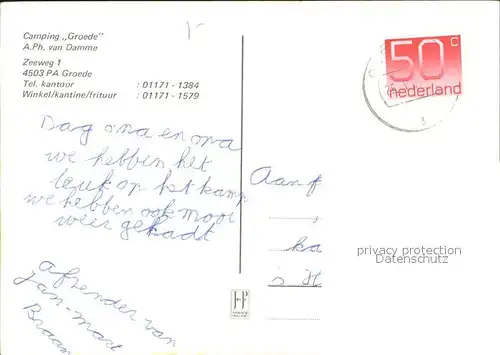 Camping „Groede"
A.Ph. van Damme
Zeeweg 1
4503 PA Groede
Tel. kantoor : 01171 - 1384
Winkel/kantine/frituur : 01171 - 1579
50 c
nederland
Dag oma en opa
we hebben het
leuk op het kamp
we hebben ook mooi
weer gehadt
afzender van
Jan-mark
Braam
Aan f
ka
s H
privacy protection
Datenschutz